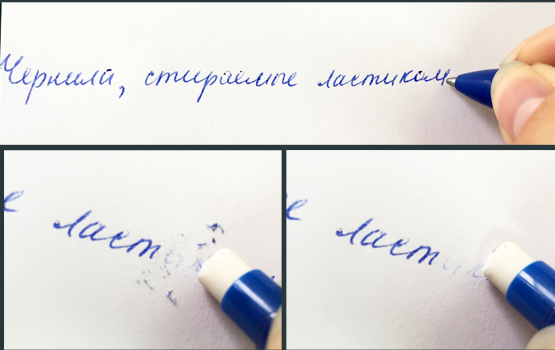 Чернила, стираемые ластиком
е ласт
е ластик